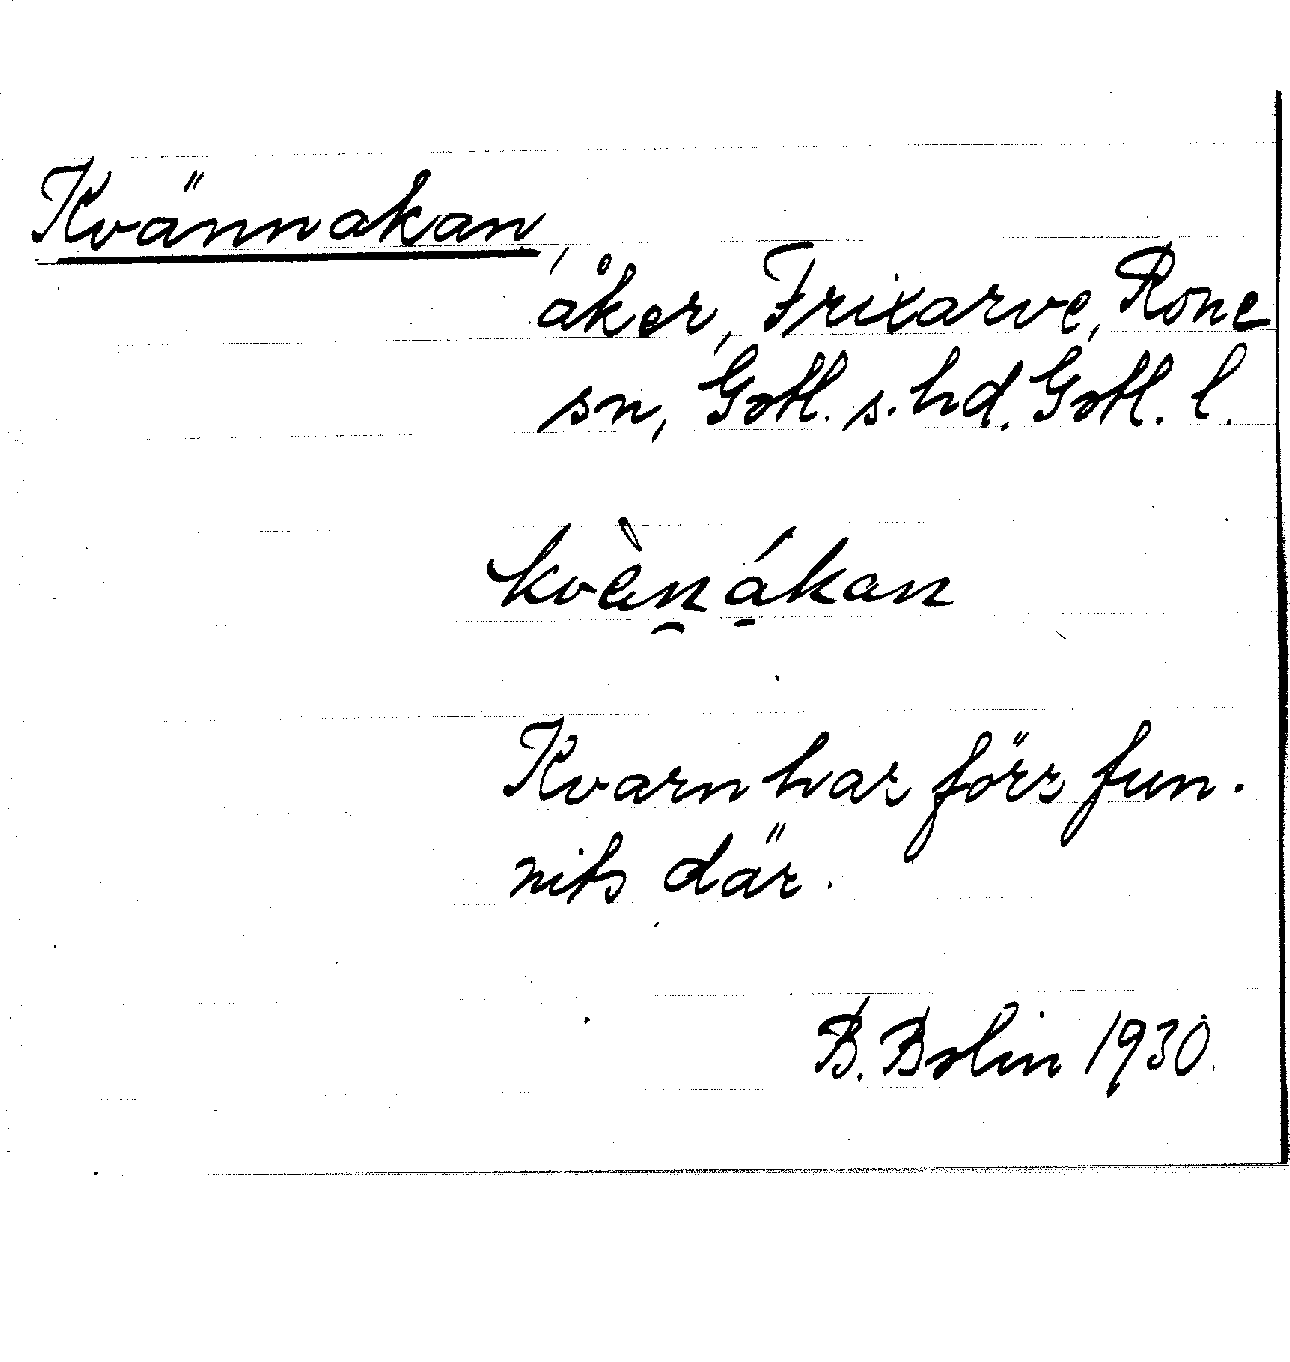 Kvännakan,
åker, Frixarve, Rone
sn, Gotl. s. hd. Gotl. l.
kvæ̀n̯á̱kan
Kvarn har förr fun-
nits där.
B. Bolin 1930.